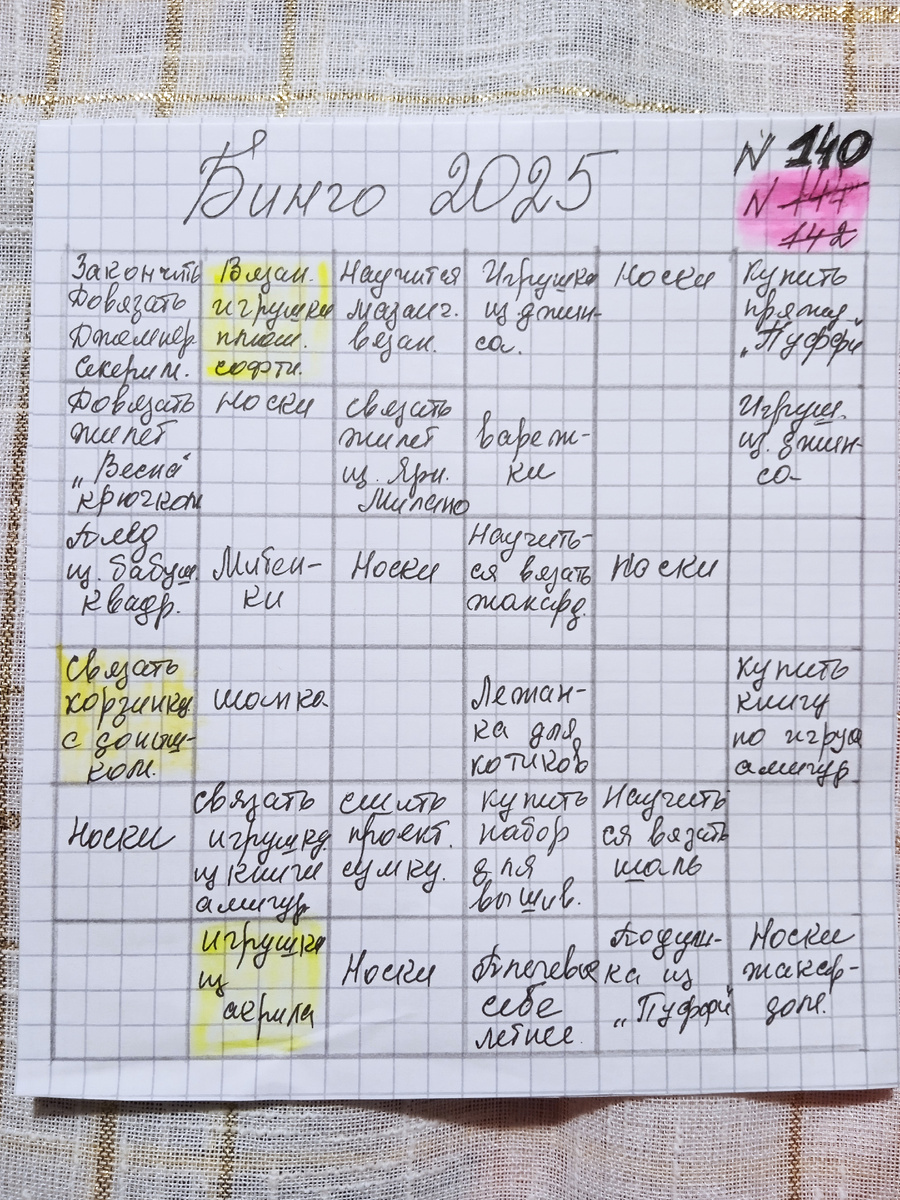 Бинго 2025
N 140
N 141
142
Закончить
Довязать
Джемпер
Секрит.
Вязан.
игрушки
плюш.
софти.
Научится
мозаич.
вязан.
Игрушка
из джин-
са.
Носки
Купить
пряжу
„Пуффи
Довязать
жилет
„Весна"
крючком
Носки
связать
жилет
из Ярн.
Милано
вареж-
ки
Игруш.
из джин-
са-
Плед
из бабуш.
квадр.
Митен-
ки
Носки
Научить-
ся вязать
жакард.
Носки
Связать
корзинку
с доныш-
ком.
шапка
Лежан-
ка для
котиков
Купить
книгу
по игруш
амигур
Носки
связать
игрушку
из книги
амигур
сшить
проект.
сумку.
купить
набор
для
вышив.
Научить
ся вязать
шаль
игрушка
из
акрила
Носки
Плечевое
себе
летнее.
Подуш-
ка из
„Пуффи"
Носки
жакар-
дом.